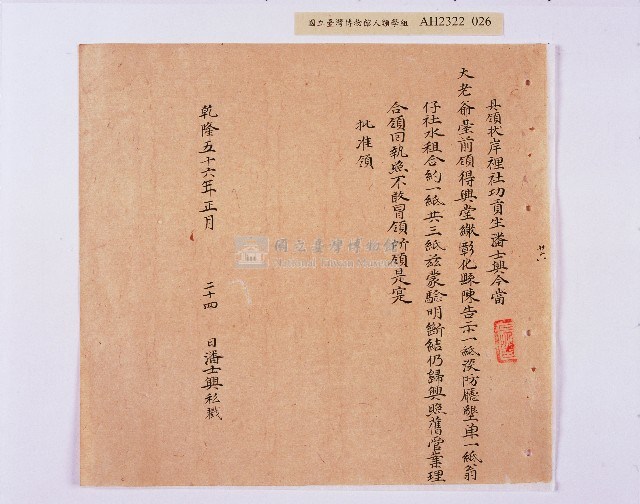 國立臺灣博物館人類學組 AH2322 026
具領狀岸裡社功貢生潘士興今當
大老爺臺前領得興堂繳彰化縣陳告示一紙淡防廳墾单一紙翁
仔社水租合約一紙共三紙茲蒙驗明斷結仍歸興照舊管業理
合領回執照不敢冒領所領是寔
批准領
乾隆五十六年正月 二十四 日潘士興私戳
國立臺灣博物館
National Taiwan Museum